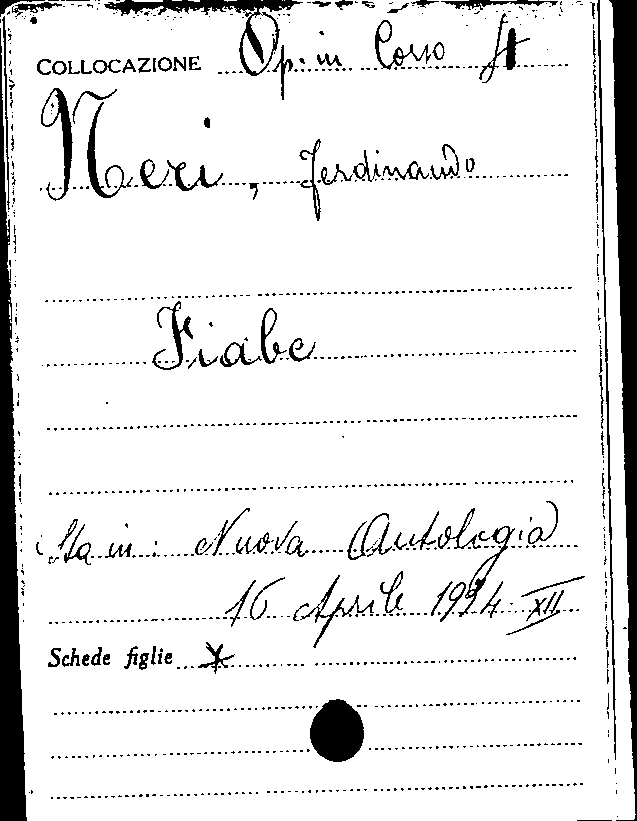 COLLOCAZIONE Op. in Corso
Neri, Ferdinando
Fiabe
Sta in: Nuova Antologia
16 Aprile 1934 XII
Schede figlie